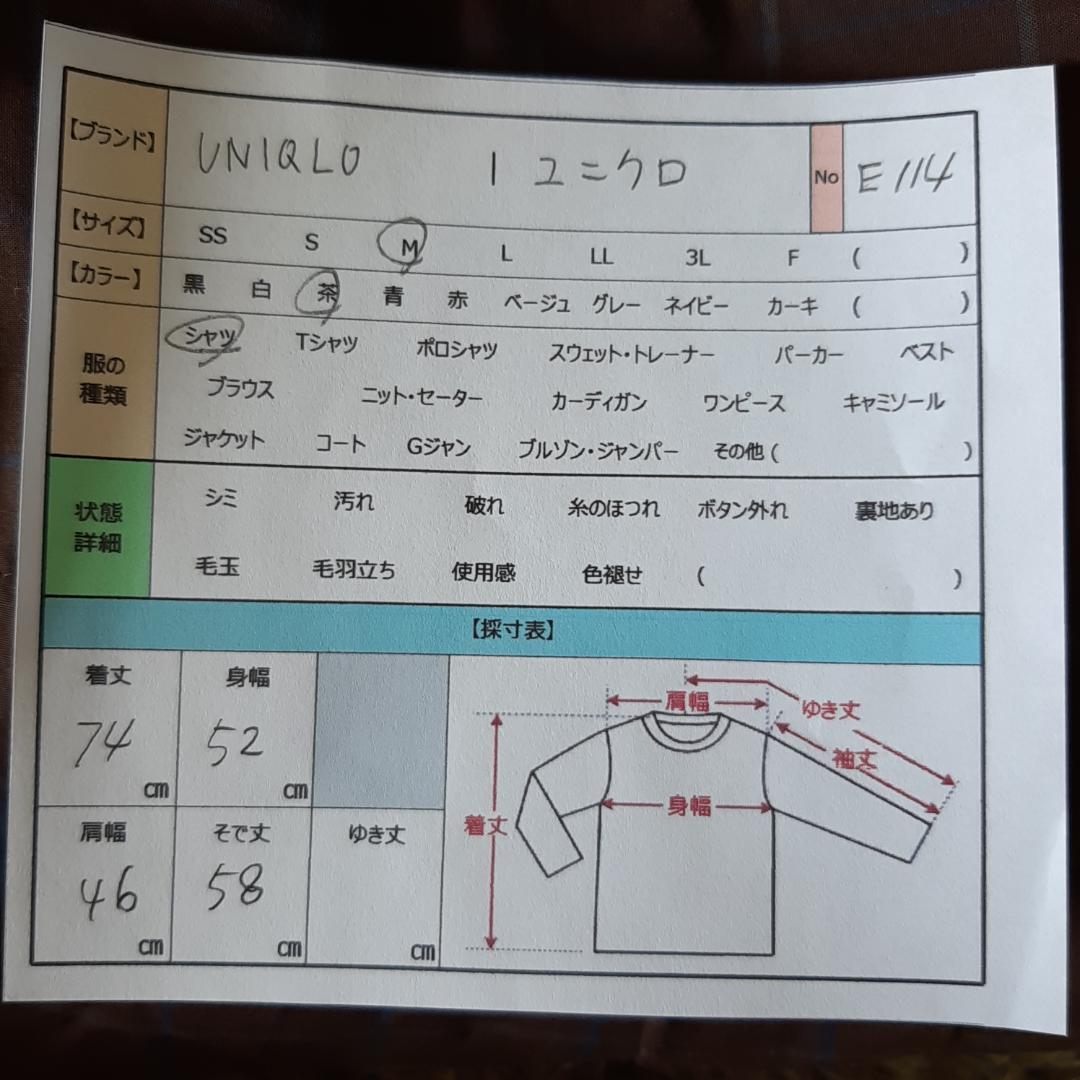 【ブランド】 UNIQLO | ユニクロ No E114
【サイズ】 SS S M L LL 3L F ( )
【カラー】 黒 白 茶 青 赤 ベージュ グレー ネイビー カーキ ( )
服の種類 シャツ Tシャツ ポロシャツ スウェット・トレーナー パーカー ベスト
ブラウス ニット・セーター カーディガン ワンピース キャミソール
ジャケット コート Gジャン ブルゾン・ジャンパー その他 ( )
状態詳細 シミ 汚れ 破れ 糸のほつれ ボタン外れ 裏地あり
毛玉 毛羽立ち 使用感 色褪せ ( )
【採寸表】
着丈 身幅
74 cm 52 cm
肩幅 そで丈 ゆき丈
46 cm 58 cm cm
肩幅 ゆき丈
袖丈
身幅
着丈